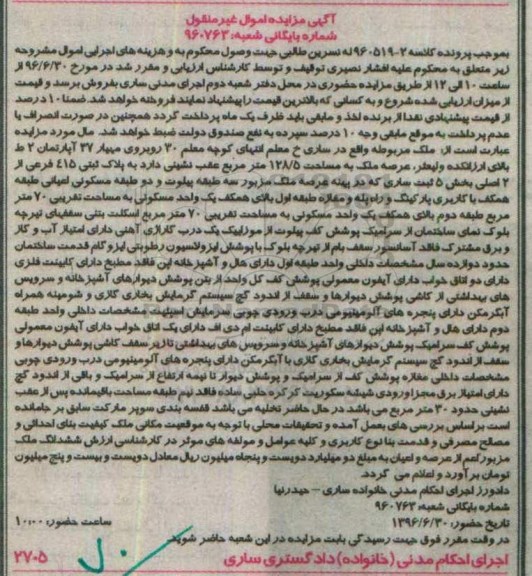 آگهی مزایده اموال غیر منقول
شماره بایگانی شعبه: ۹۶۰۷۶۳
بموجب پرونده کلاسه ۲-۹۶۰۵۱۹ له نسرین طالبی جهت وصول محکوم به و هزینه های اجرایی اموال مشروحه
زیر متعلق به محکوم علیه افشار نصیری توقیف و توسط کارشناس ارزیابی و مقرر شد در مورخ ۹۶/۶/۳۰ از
ساعت ۱۰ الی ۱۲ از طریق مزایده حضوری در محل دفتر شعبه دوم اجرای مدنی ساری بفروش برسد و قیمت
از میزان ارزیابی شده شروع و به کسانی که بالاترین قیمت را پیشنهاد نمایند فروخته خواهد شد. ضمنا ۱۰ درصد
از قیمت پیشنهادی نقدا از برنده اخذ و مابقی باید ظرف یک ماه پرداخت گردد همچنین در صورت انصراف یا
عدم پرداخت به موقع مابقی وجه ۱۰ درصد سپرده به نفع صندوق دولت ضبط خواهد شد. مال مورد مزایده
عبارت است از: ملک مربوطه واقع در ساری خ معلم انتهای کوچه معلم ۳۰ روبروی مهیار ۳۷ آپارتمان ۲ ط
بالای ارزانکده ولیعصر، عرصه ملک به مساحت ۱۲۸/۵ متر مربع عقب نشینی دارد به پلاک ثبتی ۴۱۵ فرعی از
۲ اصلی بخش ۵ ثبت ساری که در پهنه عرصه ملک مزبور سه طبقه پیلوت و دو طبقه مسکونی اعیانی طبقه
همکف با کاربری پارکینگ و راه پله و مغازه طبقه اول بالای همکف یک واحد مسکونی به مساحت تقریبی ۷۰ متر
مربع طبقه دوم بالای همکف یک واحد مسکونی به مساحت تقریبی ۷۰ متر مربع اسکلت بتنی سقفهای تیرچه
بلوک نمای ساختمان از سرامیک پوشش کف پیلوت از موزاییک یک درب کاراژی آهنی دارای امتیاز آب و گاز
و برق مشترک فاقد آسانسور سقف بام از تیرچه بلوک با پوشش ایزولاسیون رطوبتی ایزوگام قدمت ساختمان
حدود دوازده سال مشخصات داخلی واحد طبقه اول دارای هال و آشپزخانه اپن فاقد مطبخ دارای کابینت فلزی
دارای دو اتاق خواب دارای آیفون معمولی پوشش کف کل واحد از بتن پوشش دیوارهای آشپزخانه و سرویس
های بهداشتی از کاشی پوشش دیوارها و سقف از اندود گچ سیستم گرمایش بخاری گازی و شومینه همراه
آبگرمکن دارای پنجره های آلومینیومی درب ورودی چوبی سرمایش اسپلیت مشخصات داخلی واحد طبقه
دوم دارای هال و آشپزخانه اپن فاقد مطبخ دارای کابینت ام دی اف دارای یک اتاق خواب دارای آیفون معمولی
پوشش کف سرامیک پوشش دیوارهای آشپزخانه و سرویس های بهداشتی تا زیر سقف کاشی پوشش دیوارها و
سقف از اندود گچ سیستم گرمایش بخاری گازی با آبگرمکن دارای پنجره های آلومینیومی درب ورودی چوبی
مشخصات داخلی مغازه پوشش کف از سرامیک و پوشش دیوار تا نیمه ارتفاع از سرامیک و باقی از اندود گچ
دارای امتیاز برق مجزا ورودی شیشه سکوریت کرکره حلبی ساده فاقد نیم طبقه مساحت باقیمانده پس از عقب
نشینی حدود ۳۰ متر مربع می باشد در حال حاضر تخلیه می باشد قفسه بندی سوپر مارکت سابق بر جامانده
است بر اساس بررسی های بعمل آمده و تحقیقات محلی با توجه به موقعیت مکانی ملک کیفیت بنای احداثی و
مصالح مصرفی و قدمت بنا نوع کاربری و کلیه عوامل و مولفه های موثر در کارشناسی ارزش ششدانگ ملک
مزبور اعم از عرصه و اعیان به مبلغ دو میلیارد دویست و پنجاه میلیون ریال معادل دویست و بیست و پنج میلیون
تومان برآورد و اعلام می گردد.
دادورز اجرای احکام مدنی خانواده ساری - حیدرنیا
شماره بایگانی شعبه: ۹۶۰۷۶۳
تاریخ حضور: ۱۳۹۶/۶/۳۰ ساعت حضور: ۱۰:۰۰
در وقت مقرر فوق جهت رسیدگی بابت مزایده در این شعبه حاضر شوید.
اجرای احکام مدنی (خانواده) دادگستری ساری ۲۷۰۵